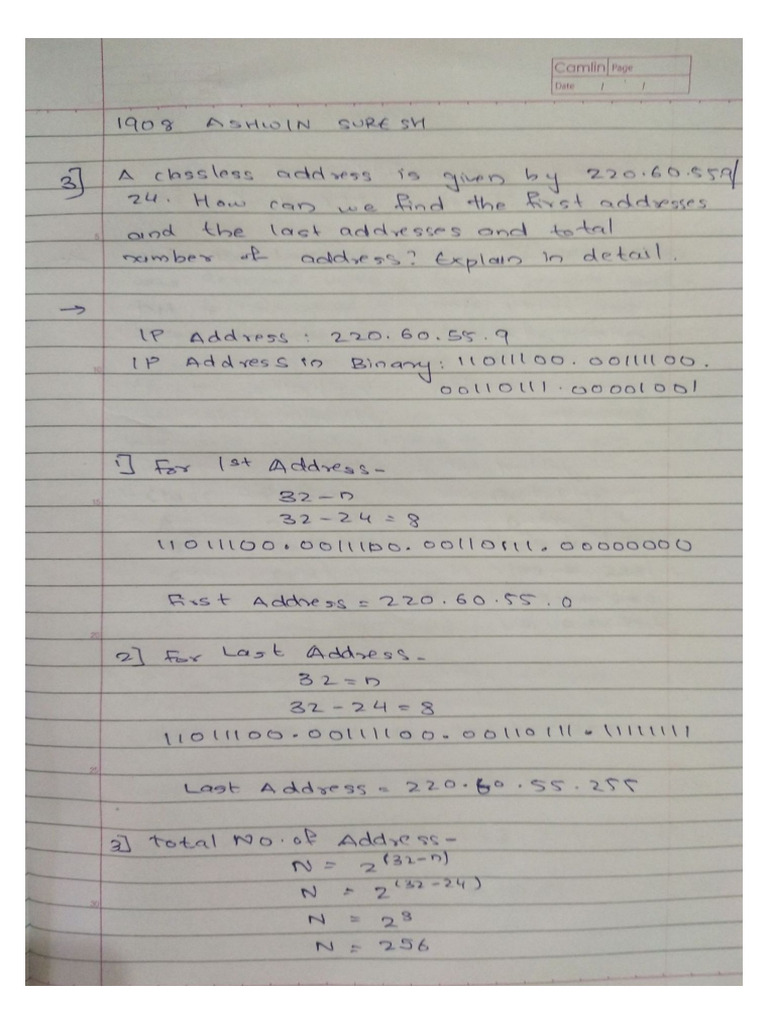 Camlin Page
Date / /
1908 ASHWIN SURESH
3] A classless address is given by 220.60.559/
24. How can we find the first addresses
and the last addresses and total
number of address? Explain in detail.
→
IP Address : 220.60.55.9
IP Address in Binary: 11011100.00111100.
00110111.00001001
1] For 1st Address-
32-n
32-24=8
11011100.00111100.00110111.00000000
First Address = 220.60.55.0
2] For Last Address-
32=n
32-24=8
11011100.00111100.00110111.11111111
Last Address = 220.60.55.255
3] Total No. of Address-
N = 2(32-n)
N = 2(32-24)
N = 28
N = 256